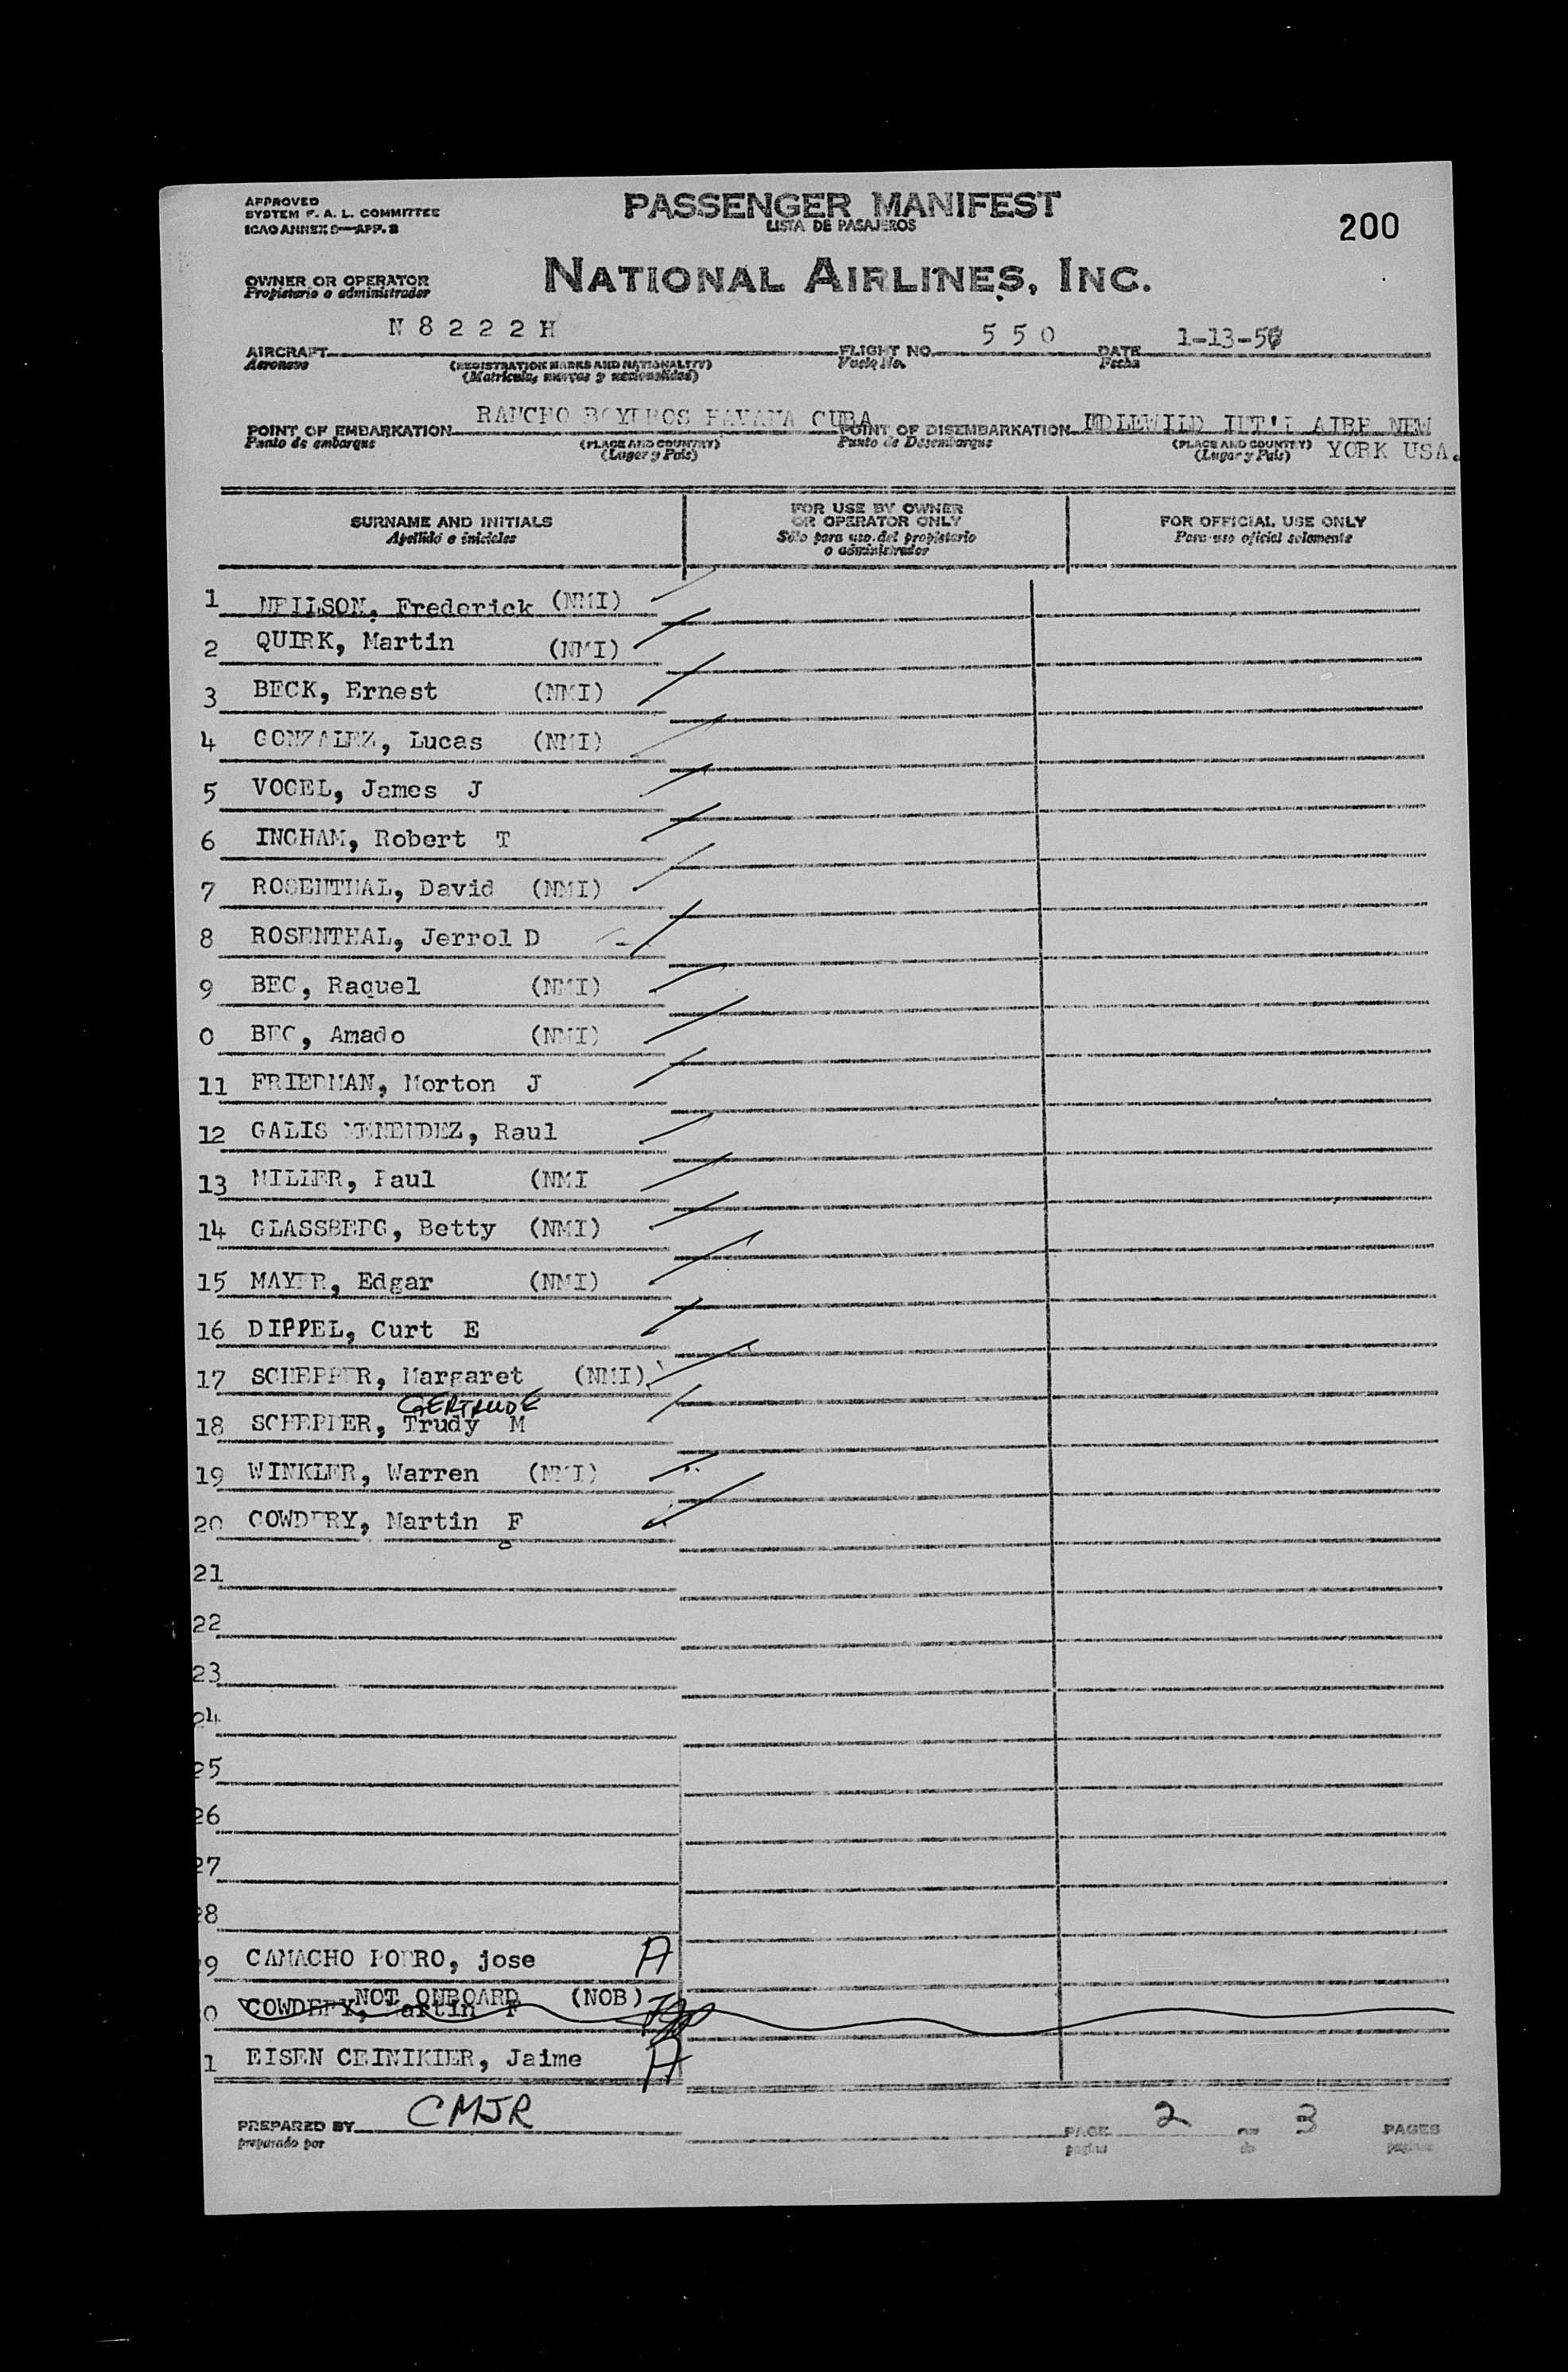 APPROVED
SYSTEM F. A. L. COMMITTEE
ICAO ANNEX 9—APP. 3
PASSENGER MANIFEST
LISTA DE PASAJEROS
200
OWNER OR OPERATOR
Propietario o administrador
NATIONAL AIRLINES, INC.
AIRCRAFT N 8 2 2 2 H FLIGHT NO. 5 5 0 DATE 1-13-56
Aeronave (REGISTRATION MARKS AND NATIONALITY) Vuelo No. Fecha
(Matricula, marcas y nacionalidad)
POINT OF EMBARKATION RANCHO BOYEROS HAVANA CUBA POINT OF DISEMBARKATION IDLEWILD INT'L AIRP NEW
Punto de embarque (PLACE AND COUNTRY) Punto de Desembarque (PLACE AND COUNTRY) YORK USA.
(Lugar y Pais) (Lugar y Pais)
SURNAME AND INITIALS
Apellido e iniciales
FOR USE BY OWNER
OR OPERATOR ONLY
Sólo para uso del propietario
o administrador
FOR OFFICIAL USE ONLY
Para uso oficial solamente
1 NEILSON, Frederick (NMI)
2 QUIRK, Martin (NMI)
3 BECK, Ernest (NMI)
4 GONZALEZ, Lucas (NMI)
5 VOGEL, James J
6 INGHAM, Robert T
7 ROSENTHAL, David (NMI)
8 ROSENTHAL, Jerrol D
9 BEC, Raquel (NMI)
0 BEC, Amado (NMI)
11 FRIEDMAN, Morton J
12 GALIS MENENDEZ, Raul
13 MILLER, Paul (NMI
14 GLASSBERG, Betty (NMI)
15 MAYER, Edgar (NMI)
16 DIPPEL, Curt E
17 SCHEPPER, Margaret (NMI)
GERTRUDE
18 SCHEPPER, Trudy M
19 WINKLER, Warren (NMI)
20 COWDERY, Martin F
21
22
23
24
25
26
27
28
29 CAMACHO PORRO, jose A
NOT ONBOARD (NOB)
0 COWDERY, Martin F
1 EISEN CEINIKIER, Jaime A
PREPARED BY CMJR PAGE 2 OF 3 PAGES
preparado por pagina de paginas